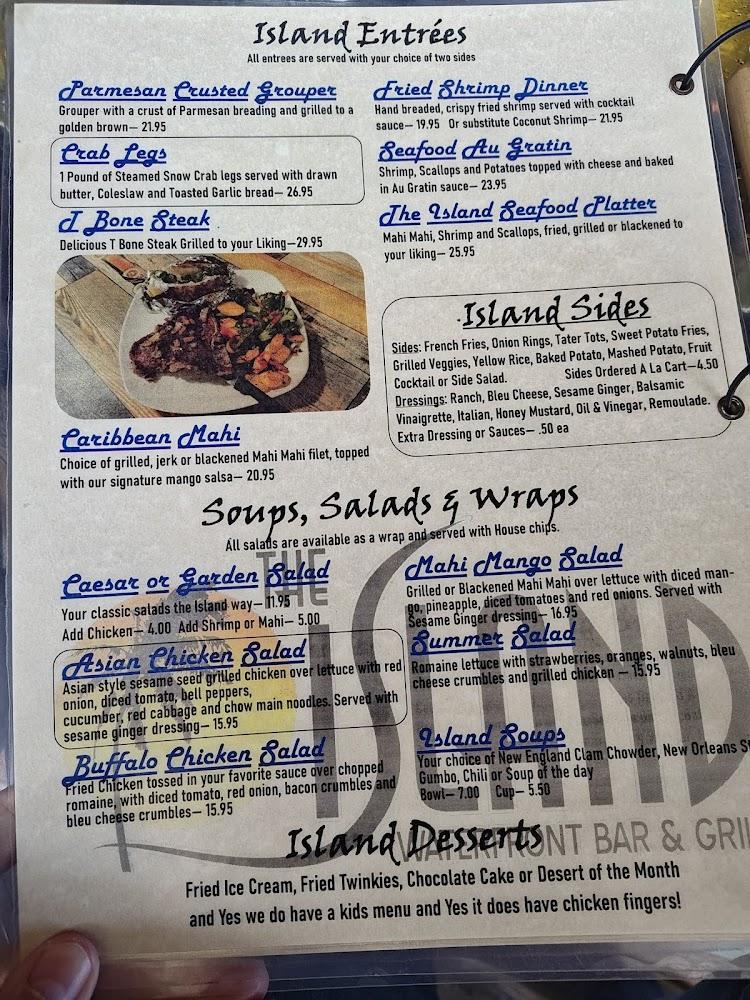 Island Entrées
All entrees are served with your choice of two sides
Parmesan Crusted Grouper
Grouper with a crust of Parmesan breading and grilled to a
golden brown— 21.95
Crab Legs
1 Pound of Steamed Snow Crab legs served with drawn
butter, Coleslaw and Toasted Garlic bread— 26.95
T Bone Steak
Delicious T Bone Steak Grilled to your Liking—29.95
Caribbean Mahi
Choice of grilled, jerk or blackened Mahi Mahi filet, topped
with our signature mango salsa— 20.95
Fried Shrimp Dinner
Hand breaded, crispy fried shrimp served with cocktail
sauce— 19.95 Or substitute Coconut Shrimp— 21.95
Seafood Au Gratin
Shrimp, Scallops and Potatoes topped with cheese and baked
in Au Gratin sauce— 23.95
The Island Seafood Platter
Mahi Mahi, Shrimp and Scallops, fried, grilled or blackened to
your liking— 25.95
Island Sides
Sides: French Fries, Onion Rings, Tater Tots, Sweet Potato Fries,
Grilled Veggies, Yellow Rice, Baked Potato, Mashed Potato, Fruit
Cocktail or Side Salad. Sides Ordered A La Cart—4.50
Dressings: Ranch, Bleu Cheese, Sesame Ginger, Balsamic
Vinaigrette, Italian, Honey Mustard, Oil & Vinegar, Remoulade.
Extra Dressing or Sauces— .50 ea
Soups, Salads & Wraps
All salads are available as a wrap and served with House chips.
Caesar or Garden Salad
Your classic salads the Island way— 11.95
Add Chicken— 4.00 Add Shrimp or Mahi— 5.00
Asian Chicken Salad
Asian style sesame seed grilled chicken over lettuce with red
onion, diced tomato, bell peppers,
cucumber, red cabbage and chow main noodles. Served with
sesame ginger dressing— 15.95
Buffalo Chicken Salad
Fried Chicken tossed in your favorite sauce over chopped
romaine, with diced tomato, red onion, bacon crumbles and
bleu cheese crumbles— 15.95
Mahi Mango Salad
Grilled or Blackened Mahi Mahi over lettuce with diced man-
go, pineapple, diced tomatoes and red onions. Served with
Sesame Ginger dressing— 16.95
Summer Salad
Romaine lettuce with strawberries, oranges, walnuts, bleu
cheese crumbles and grilled chicken — 15.95
Island Soups
Your choice of New England Clam Chowder, New Orleans
Gumbo, Chili or Soup of the day
Bowl— 7.00 Cup— 5.50
THE
ISLAND
WATERFRONT BAR &
Island Desserts
Fried Ice Cream, Fried Twinkies, Chocolate Cake or Desert of the Month
and Yes we do have a kids menu and Yes it does have chicken fingers!